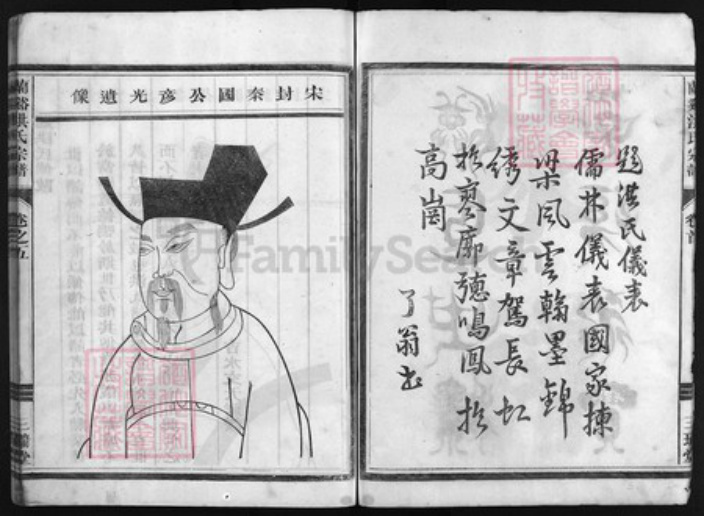 題洪氏儀表
儒林儀表國家棟
梁風雲翰墨錦
綉文章駕長虹
於寥廓聽鳴鳳於
高崗
了翁書
宋封秦國公彥光遺像
蘭谿洪氏宗譜
卷之五
三瑞堂
FamilySearch